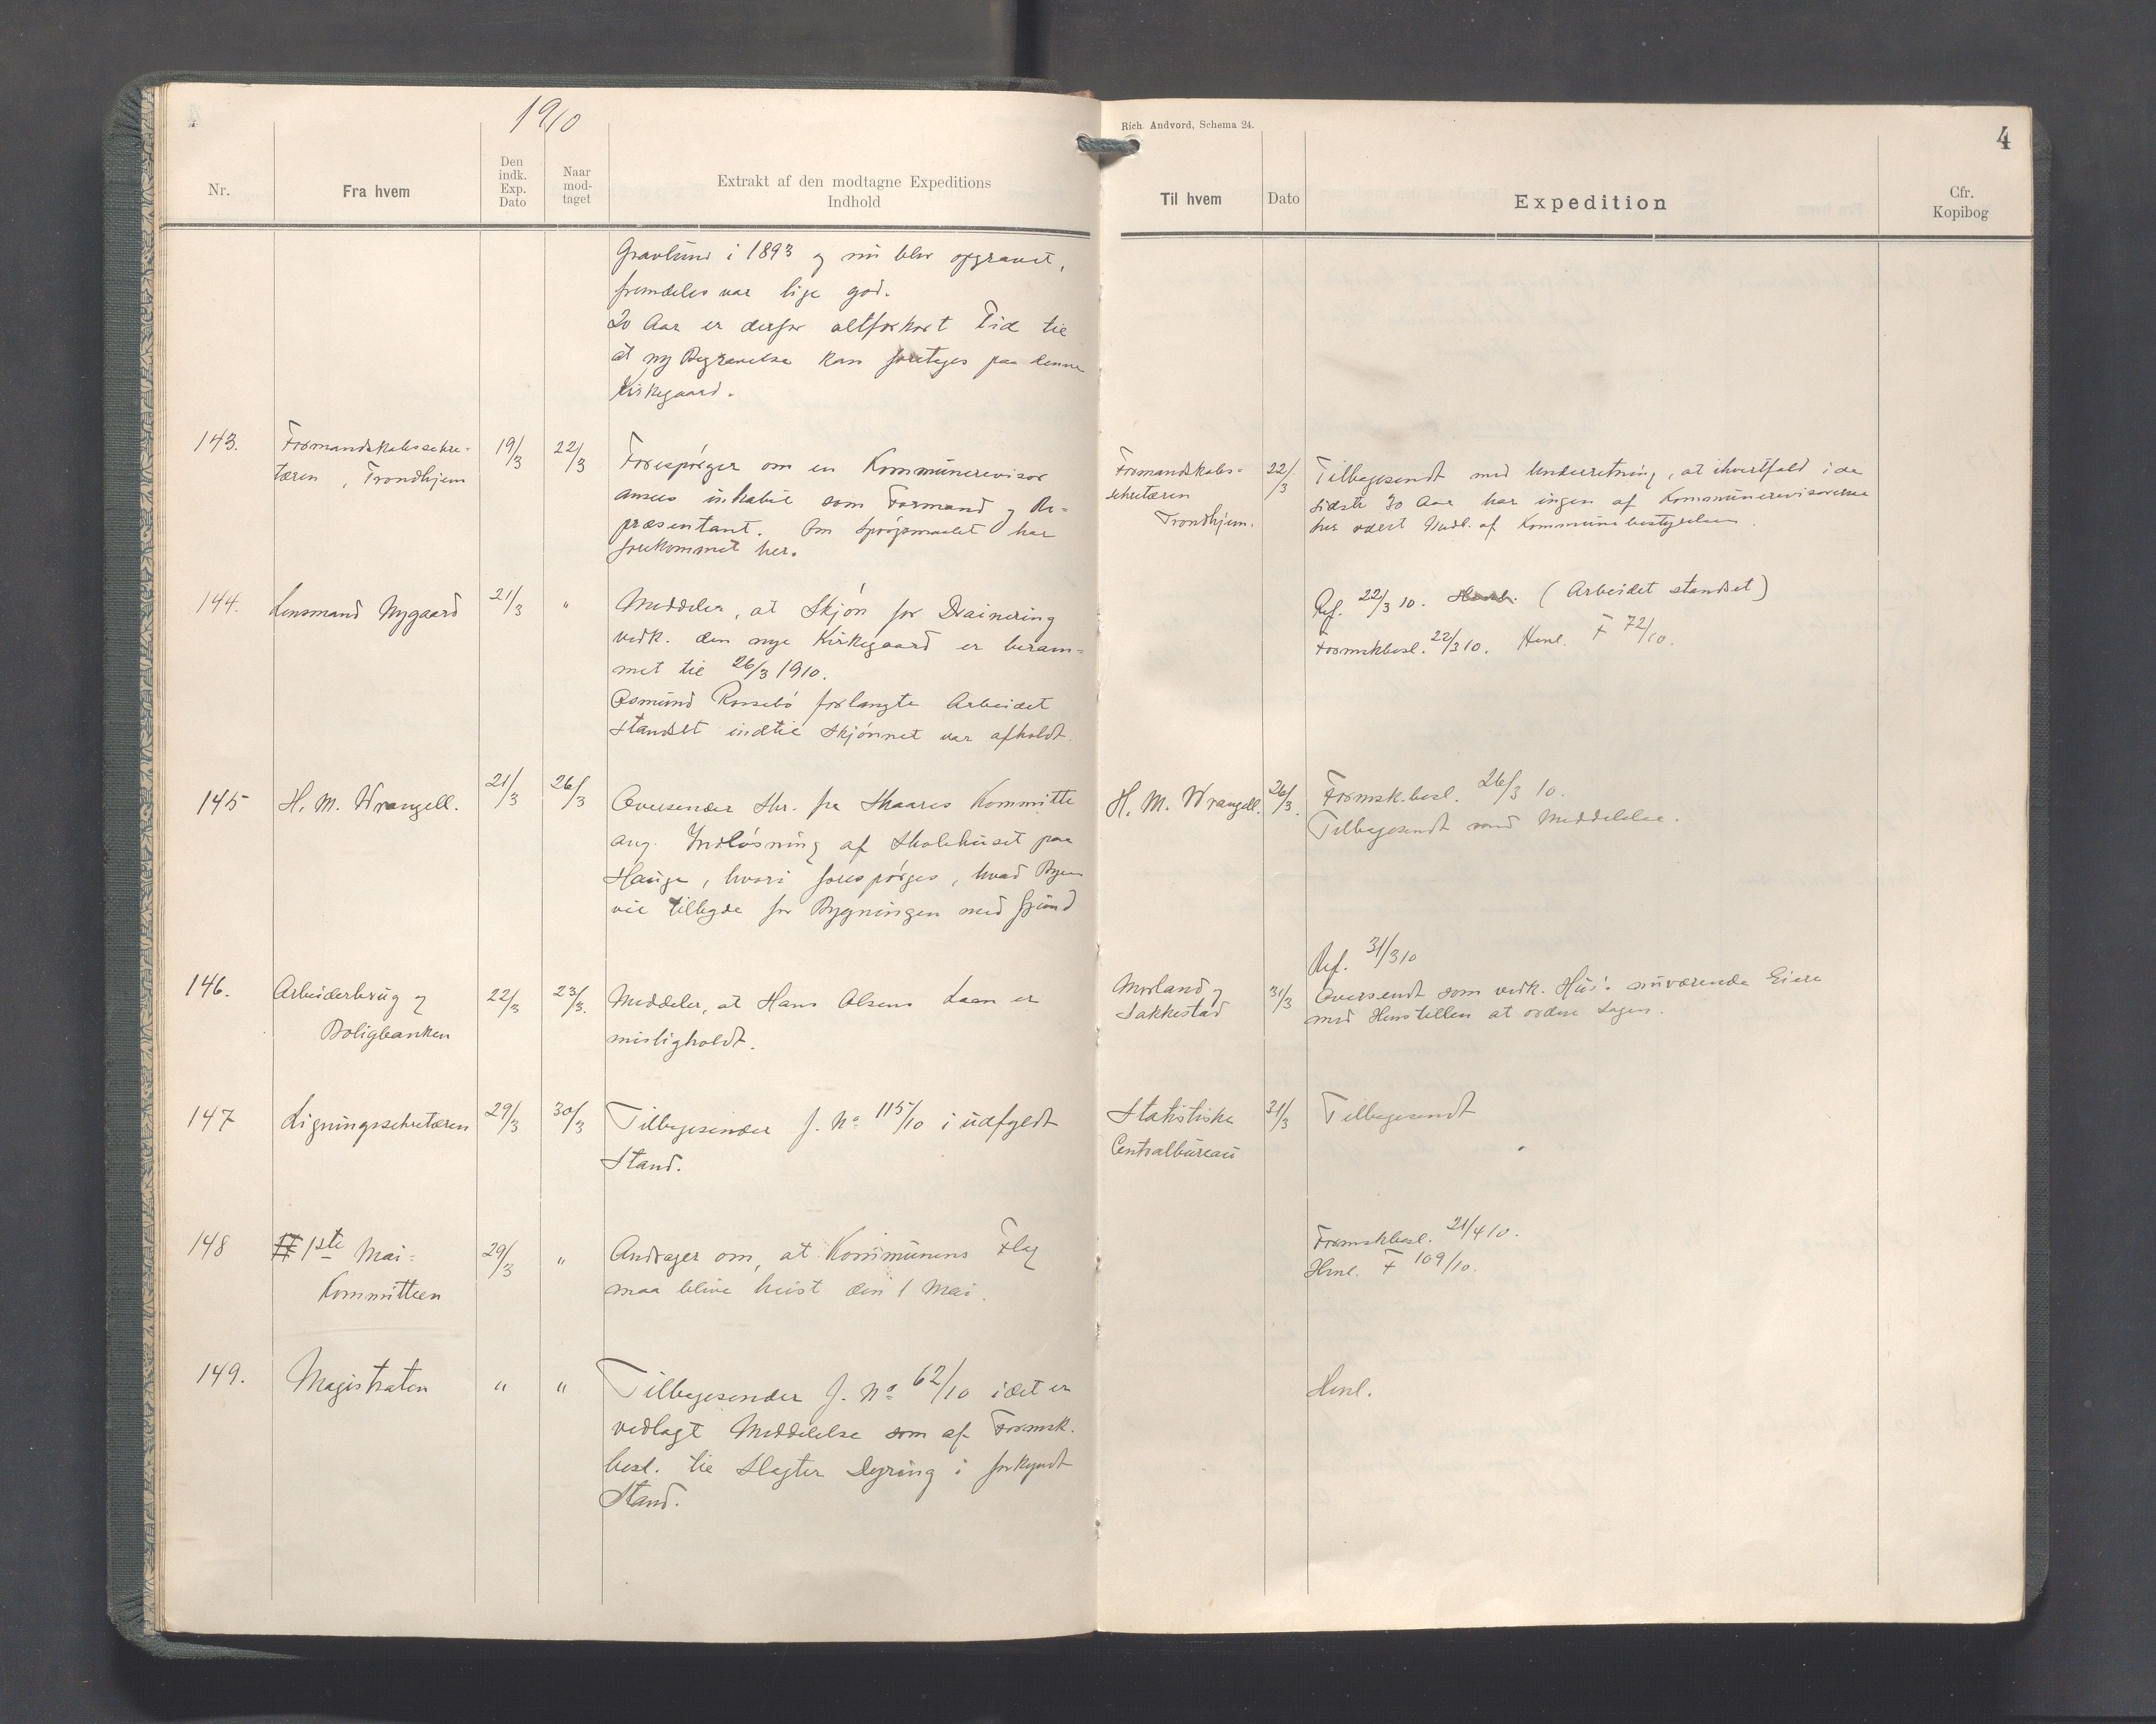 1910
Rich. Andvord, Schema 24.
4
Nr.
Fra hvem
Den
indk.
Exp.
Dato
Naar
mod-
taget
Extrakt af den modtagne Expeditions
Indhold
Til hvem
Dato
Expedition
Cfr.
Kopibog
Gravlund i 1893 og nu blev opgravet,
fremdeles var lige god.
20 Aar er derfor altforkort Tid til
at ny Begravelse kan foretages paa denne
Kirkegaard.
143.
Formandskabssekre-
tæren, Trondhjem
19/3
22/3
Forespørger om en Kommunerevisor
ansees inhabil som Formand og Re-
præsentant. Om Spørgsmaalet har
forekommet her.
Formandskabs-
sekretæren
Trondhjem.
22/3
Tilbagesendt med Underretning, at ihvertfald i de
sidste 30 Aar har ingen af Kommunerevisorerne
her været Medl. af Kommunebestyrelsen.
144.
Lensmand Nygaard
21/3
"
Meddeler, at Skjøn for Drainering
vedk. den nye Kirkegaard er beram-
met til 26/3 1910.
Osmund Rossebø forlangte Arbeidet
standset indtil Skjønnet var afholdt.
Ref. 22/3 10. Henl. (Arbeidet standset)
Formskbesl. 22/3 10. Henl. F 72/10.
145
H. M. Wrangell.
21/3
26/3
Oversender Skr. fra Skaares Kommitte
ang. Indløsning af Skolehuset paa
Hauge, hvori forespørges, hvad Byen
vil tilbyde for Bygningen med Grund
H. M. Wrangell.
26/3.
Formsk.besl. 26/3 10.
Tilbagesendt med Meddelelse.
146.
Arbeiderbrug og
Boligbanken
22/3
23/3.
Meddeler, at Hans Olsens Laan er
misligholdt.
Morland og
Sakkestad
31/3
Ref. 31/3 10
Oversendt som vedk. Hus's nuværende Eiere
med Henstillen at ordne Sagen.
147
Ligningssekretæren
29/3
30/3
Tilbagesender J. No 115/10 i udfyldt
Stand.
Statistiske
Centralbureau
31/3
Tilbagesendt
148
1ste Mai-
Kommitteen
29/3
"
Andrager om, at Kommunens Flag
maa blive heist den 1 Mai.
Formskbesl. 21/4 10.
Henl. F 109/10.
149.
Magistraten
"
"
Tilbagesender J. No 62/10 idet er
vedlagt Meddelelse som af Formsk.
besl. til Slagter Dyring i forkyndt
Stand.
Henl.